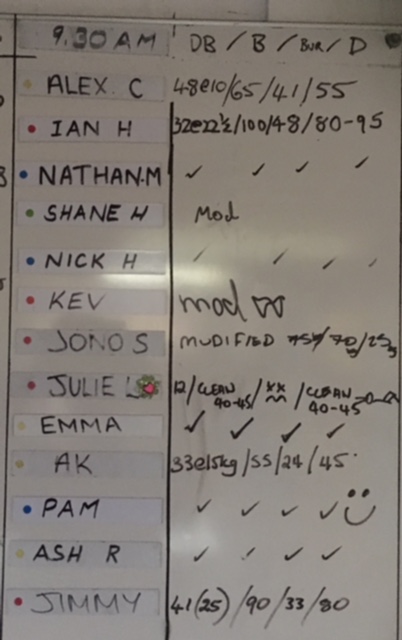 9.30 AM DB / B / BUR / D
ALEX. C 48@10/65/41/55
IAN H 32@22½/100/48/80-95
NATHAN.M ✓ ✓ ✓ ✓
SHANE H Mod
NICK H ✓ ✓ ✓ ✓
KEV mod
JONO S MODIFIED
JULIE L 12/CLEAN 40-45/xx/CLEAN 40-45
EMMA ✓ ✓ ✓ ✓
AK 33@15kg/55/24/45
PAM ✓ ✓ ✓ ✓
ASH R ✓ ✓ ✓ ✓
JIMMY 41(25)/90/33/80